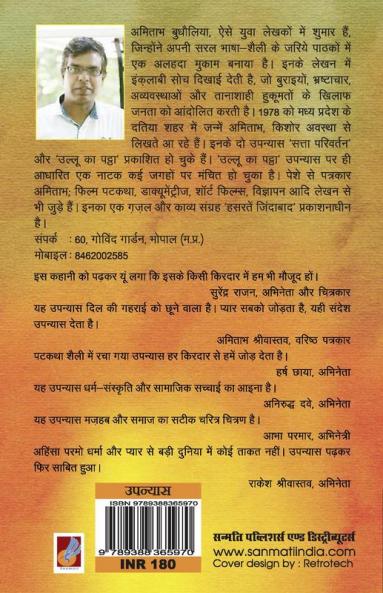 अमिताभ बुधौलिया, ऐसे युवा लेखकों में शुमार हैं,
जिन्होंने अपनी सरल भाषा–शैली के जरिये पाठकों में
एक अलहदा मुकाम बनाया है। इनके लेखन में
इंक़लाबी सोच दिखाई देती है, जो बुराइयों, भ्रष्टाचार,
अव्यवस्थाओं और तानाशाही हुकूमतों के खिलाफ
जनता को आंदोलित करती है। 1978 को मध्य प्रदेश के
दतिया शहर में जन्में अमिताभ, किशोर अवस्था से
लिखते आ रहे हैं। इनके दो उपन्यास 'सत्ता परिवर्तन'
और 'उल्लू का पट्ठा' प्रकाशित हो चुके हैं। 'उल्लू का पट्ठा' उपन्यास पर ही
आधारित एक नाटक कई जगहों पर मंचित हो चुका है। पेशे से पत्रकार
अमिताभ; फिल्म पटकथा, डाक्यूमेंट्रीज, शॉर्ट फिल्म्स, विज्ञापन आदि लेखन से
भी जुड़े हैं। इनका एक गज़ल और काव्य संग्रह 'हसरतें जिंदाबाद' प्रकाशनाधीन
है।
संपर्क : 60, गोविंद गार्डन, भोपाल (म.प्र.)
मोबाइल : 8462002585
इस कहानी को पढ़कर यूं लगा कि इसके किसी किरदार में हम भी मौजूद हों।
सुरेंद्र राजन, अभिनेता और चित्रकार
यह उपन्यास दिल की गहराई को छूने वाला है। प्यार सबको जोड़ता है, यही संदेश
उपन्यास देता है।
अमिताभ श्रीवास्तव, वरिष्ठ पत्रकार
पटकथा शैली में रचा गया उपन्यास हर किरदार से हमें जोड़ देता है।
हर्ष छाया, अभिनेता
यह उपन्यास धर्म–संस्कृति और सामाजिक सच्चाई का आइना है।
अनिरुद्ध दवे, अभिनेता
यह उपन्यास मज़हब और समाज का सटीक चरित्र चित्रण है।
आभा परमार, अभिनेत्री
अहिंसा परमो धर्मा और प्यार से बड़ी दुनिया में कोई ताकत नहीं। उपन्यास पढ़कर
फिर साबित हुआ।
राकेश श्रीवास्तव, अभिनेता
उपन्यास
ISBN 9789388365970
9 789388 365970
INR 180
सन्मति पब्लिशर्स एण्ड डिस्ट्रीब्यूटर्स
www.sanmatiindia.com
Cover design by : Retrotech